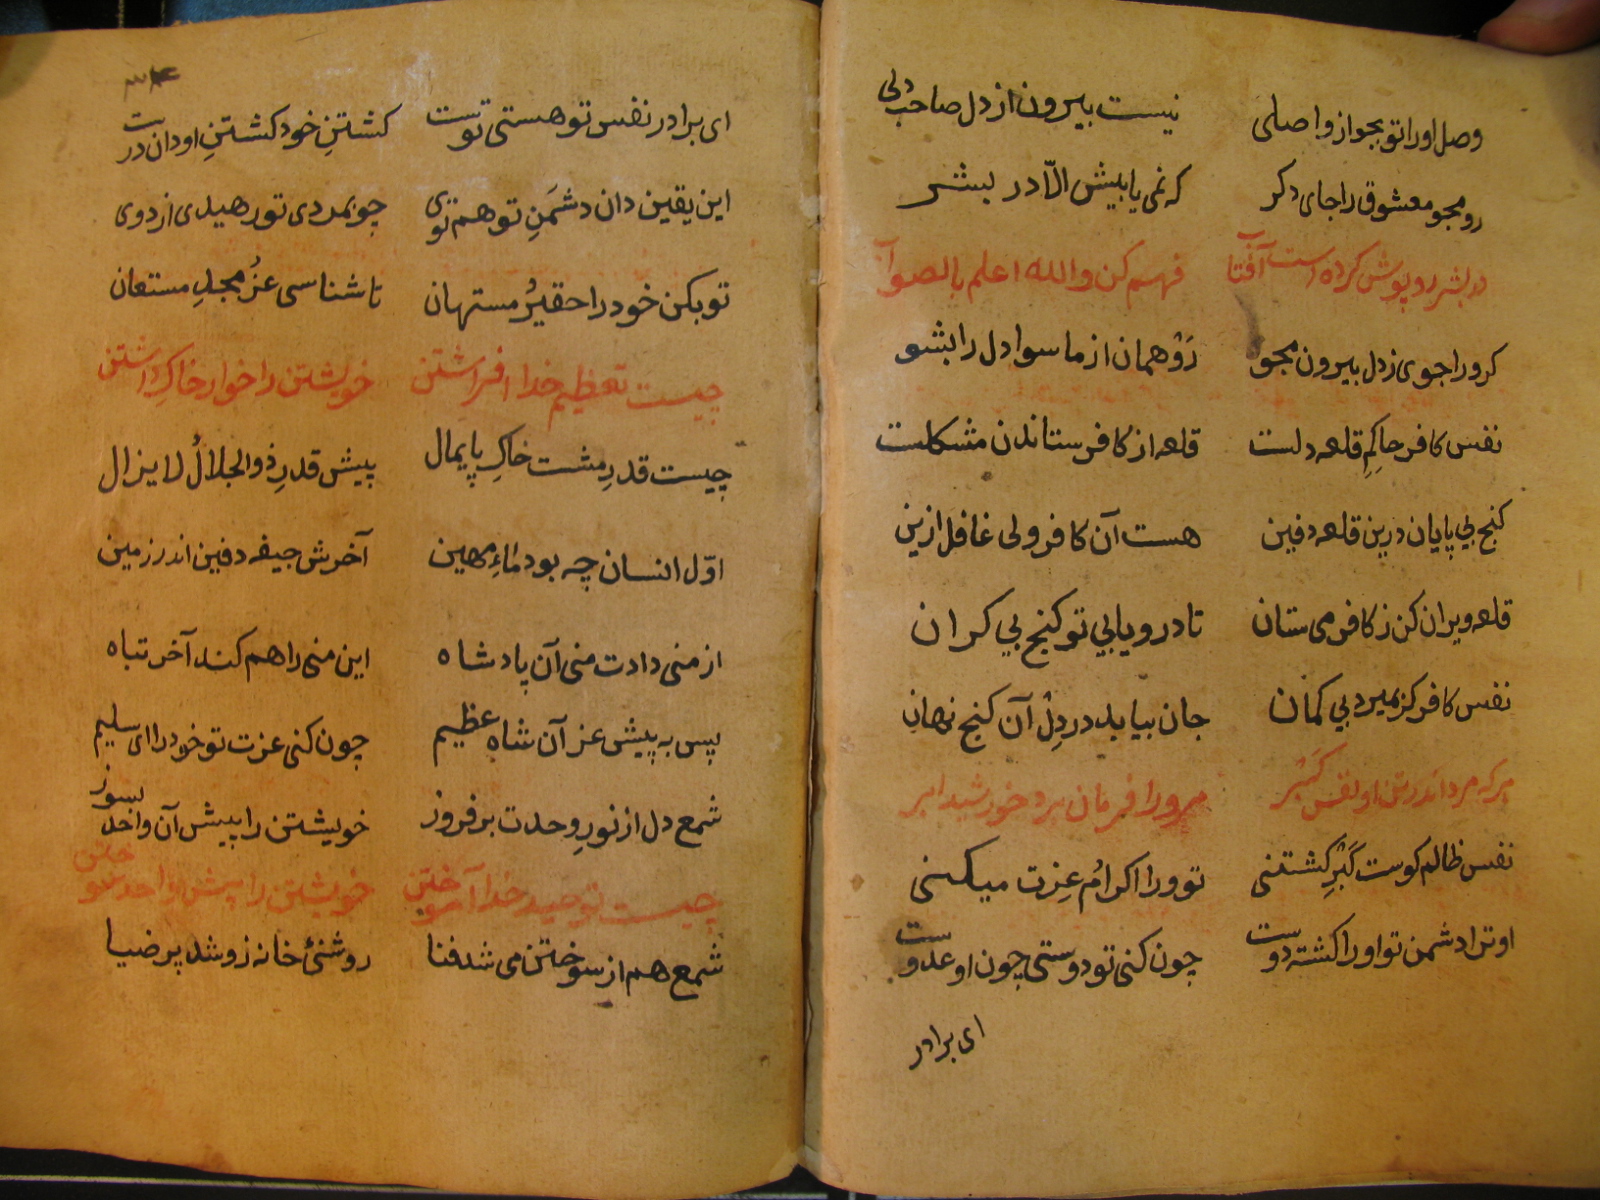 وصل اورا تو بجو از واصلی نیست بیرون از دل صاحب دلی
رو مجو معشوق را جای دکر که نمی یابیش الّا در بشر
در بشر روپوش کرده است آفتاب فهم کن والله اعلم بالصواب
کر ورا جوی ز دل بیرون مجو رَوْ همان از ما سوا دل را بشو
نفس کافر حاکِمِ قلعه دلست قلعه از کافر ستاندن مشکلست
کنج بی پایان درین قلعه دفین هست آن کافر ولی غافل ازین
قلعه ویران کن ز کافر می ستان تا درو یابی تو کنج بی کران
نفس کافر کز بمیرد بی کمان جان بیابد در دِلْ آن کنج نهان
هرکه مرد اندر تن او نفس کَبْر مرورا فرمان برد خورشید ابر
نفس ظالم کوست کَبْرِ کشتنی تو ورا اکرامُ عِزت میکنی
او ترا دشمن تو اورا کشته دوست چون کنی تو دوستی چون او عدوست
ای برادر
ای برادر نفس تو هستی توست کشتنِ خود کشتنِ او دان درست
این یقین دان دشمَنِ تو هم توی چو بمردی تو رهیدی از دوی
تو بکن خود را حقیرُ مستهان تا شناسی عزُ مجدِ مستعان
چیست تعظیم خدا افراشتن خویشتن را خوار خاکی داشتن
چیست قدرِ مشت خاکِ پایمال پیش قدرِ ذوالجلالُ لا یزال
اوّل انسان چه بود ماءِ مهین آخرش جیفه دفین اندر زمین
از منی دادت منی آن پادشاه این منی را هم کند آخر تباه
پس به پیش عز آن شاه عظیم چون کنی عزت تو خود را ای سلیم
شمع دل از نورِ وحدت بر فروز خویشتن را پیش آن واحد بسوز
چیست توحید خدا آموختن خویشتن را پیش واحد سوختن
شمع هم از سوختن می شد فنا روشنئ خانه زو شد پر ضیا